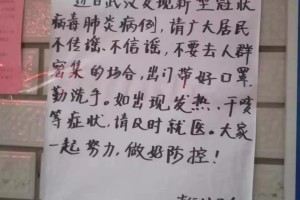 近日武汉发现新型冠状
病毒肺炎病例，请广大居民
不传谣、不信谣，不要去人群
密集的场合，出门带好口罩
勤洗手。如出现发热、干咳
等症状，请及时就医。大家
一起努力，做好防控！